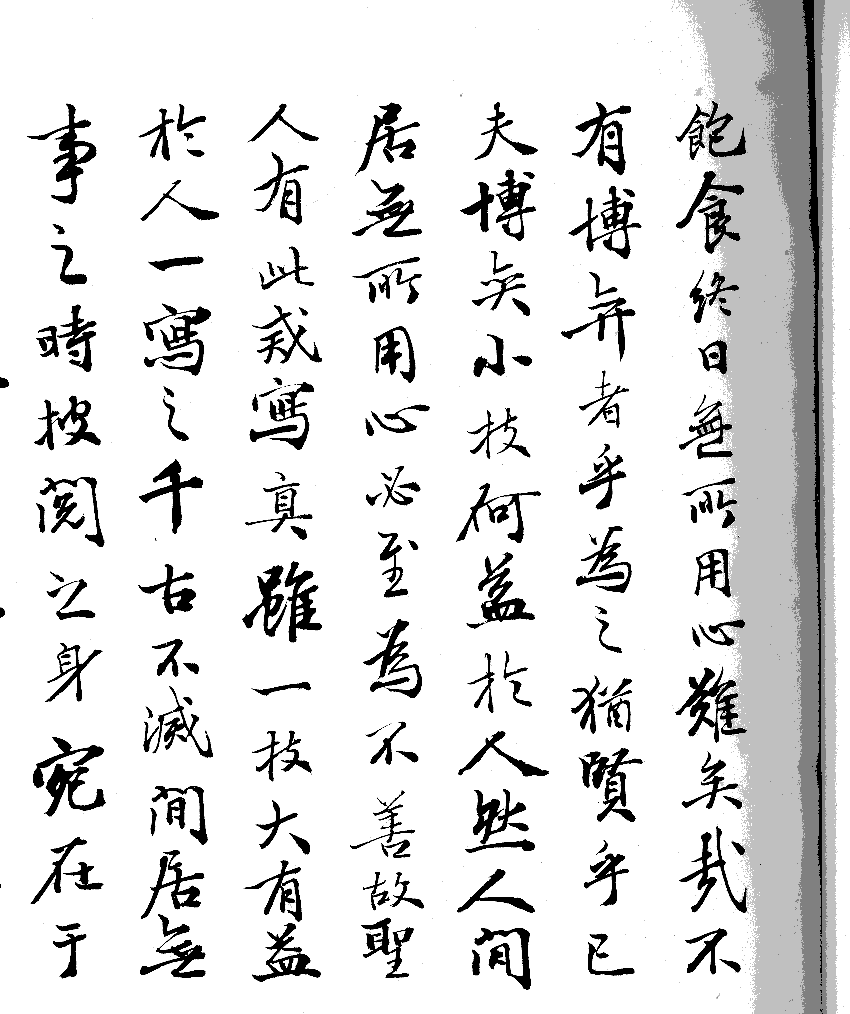 飽食終日無所用心難矣哉不
有博弈者乎為之猶賢乎已
夫博奕小技何益於人然人間
居無所用心必至為不善故聖
人有此戒寫真雖一技大有益
於人一寫之千古不滅間居無
事之時披閱之身宛在于